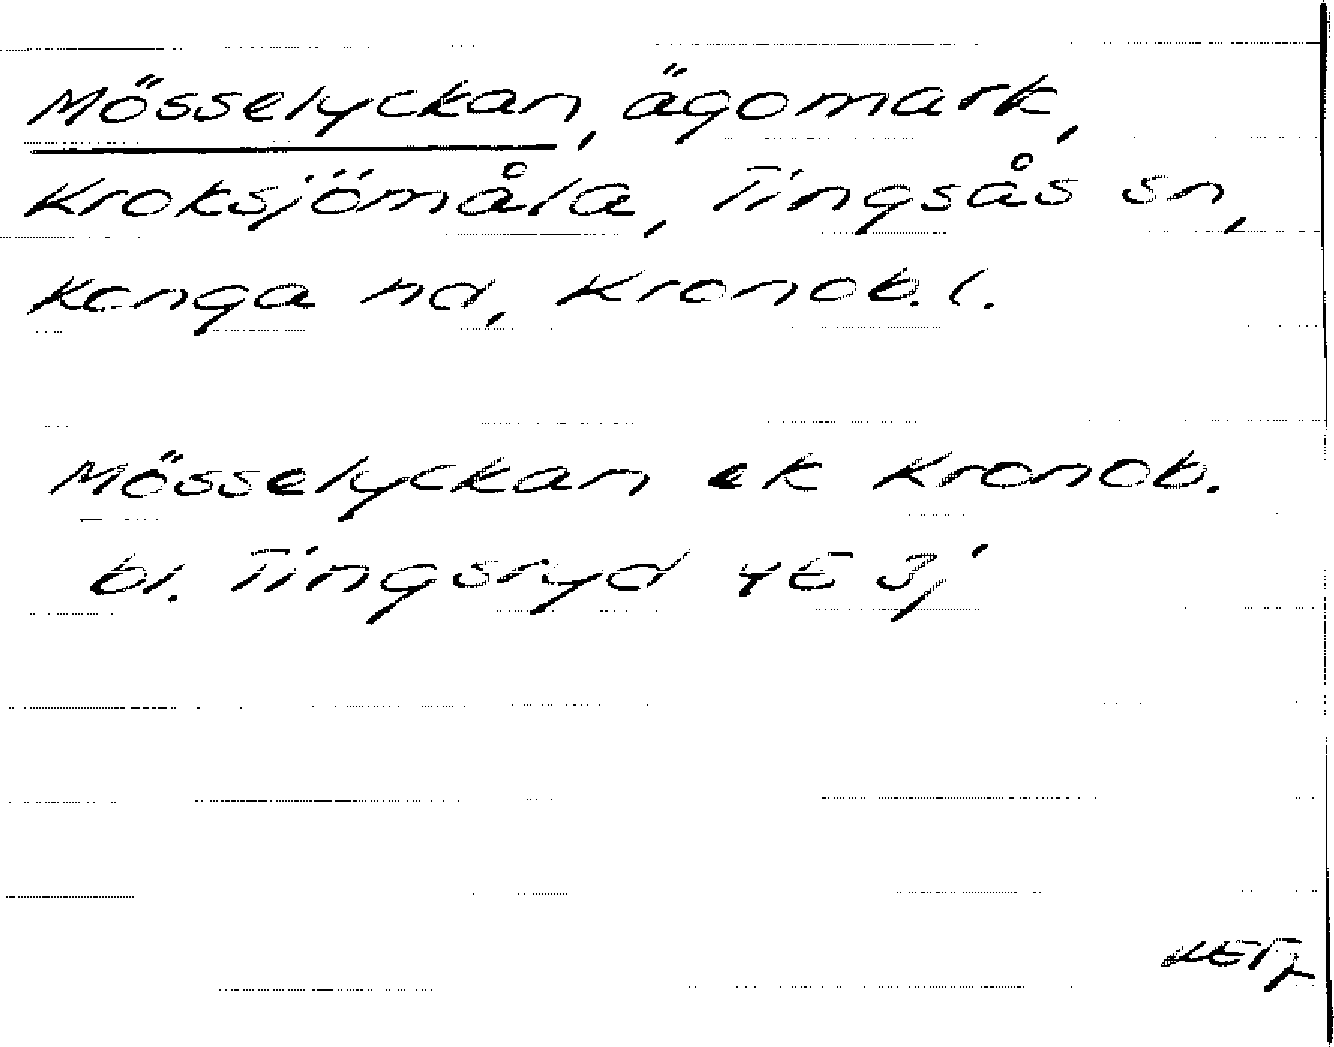 Mösselyckan, ägomark,
Kroksjömåla, Tingsås sn,
Konga hd, Kronob. l.
Mösselyckan ek Kronob.
bl. Tingsryd 4E 3j